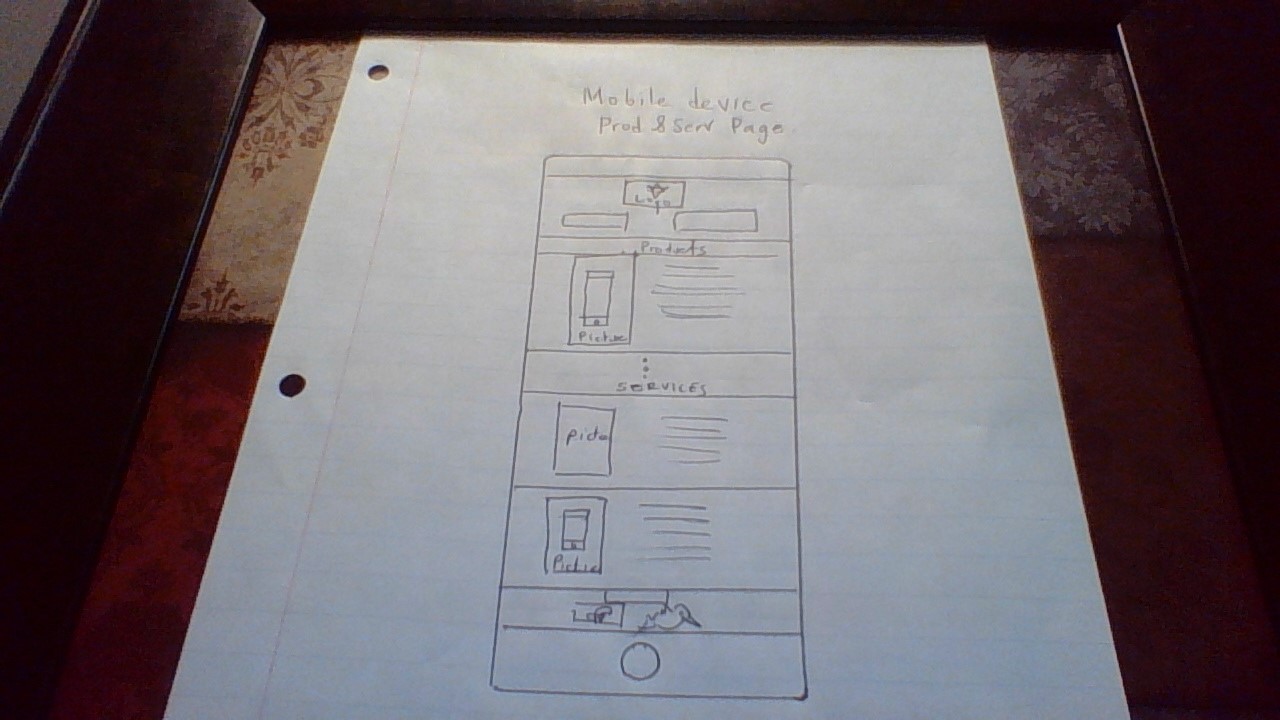 Mobile device
Prod & Serv Page
Logo
Products
Picture
SERVICES
Picture